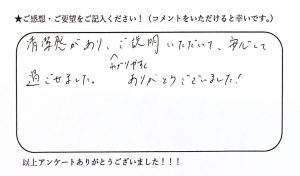 ★ご感想・ご要望をご記入ください！（コメントをいただけると幸いです。）
清潔感があり、ご説明いただいて、安心して
わかりやすく
過ごせました。 ありがとうございました！
以上アンケートありがとうございました！！！